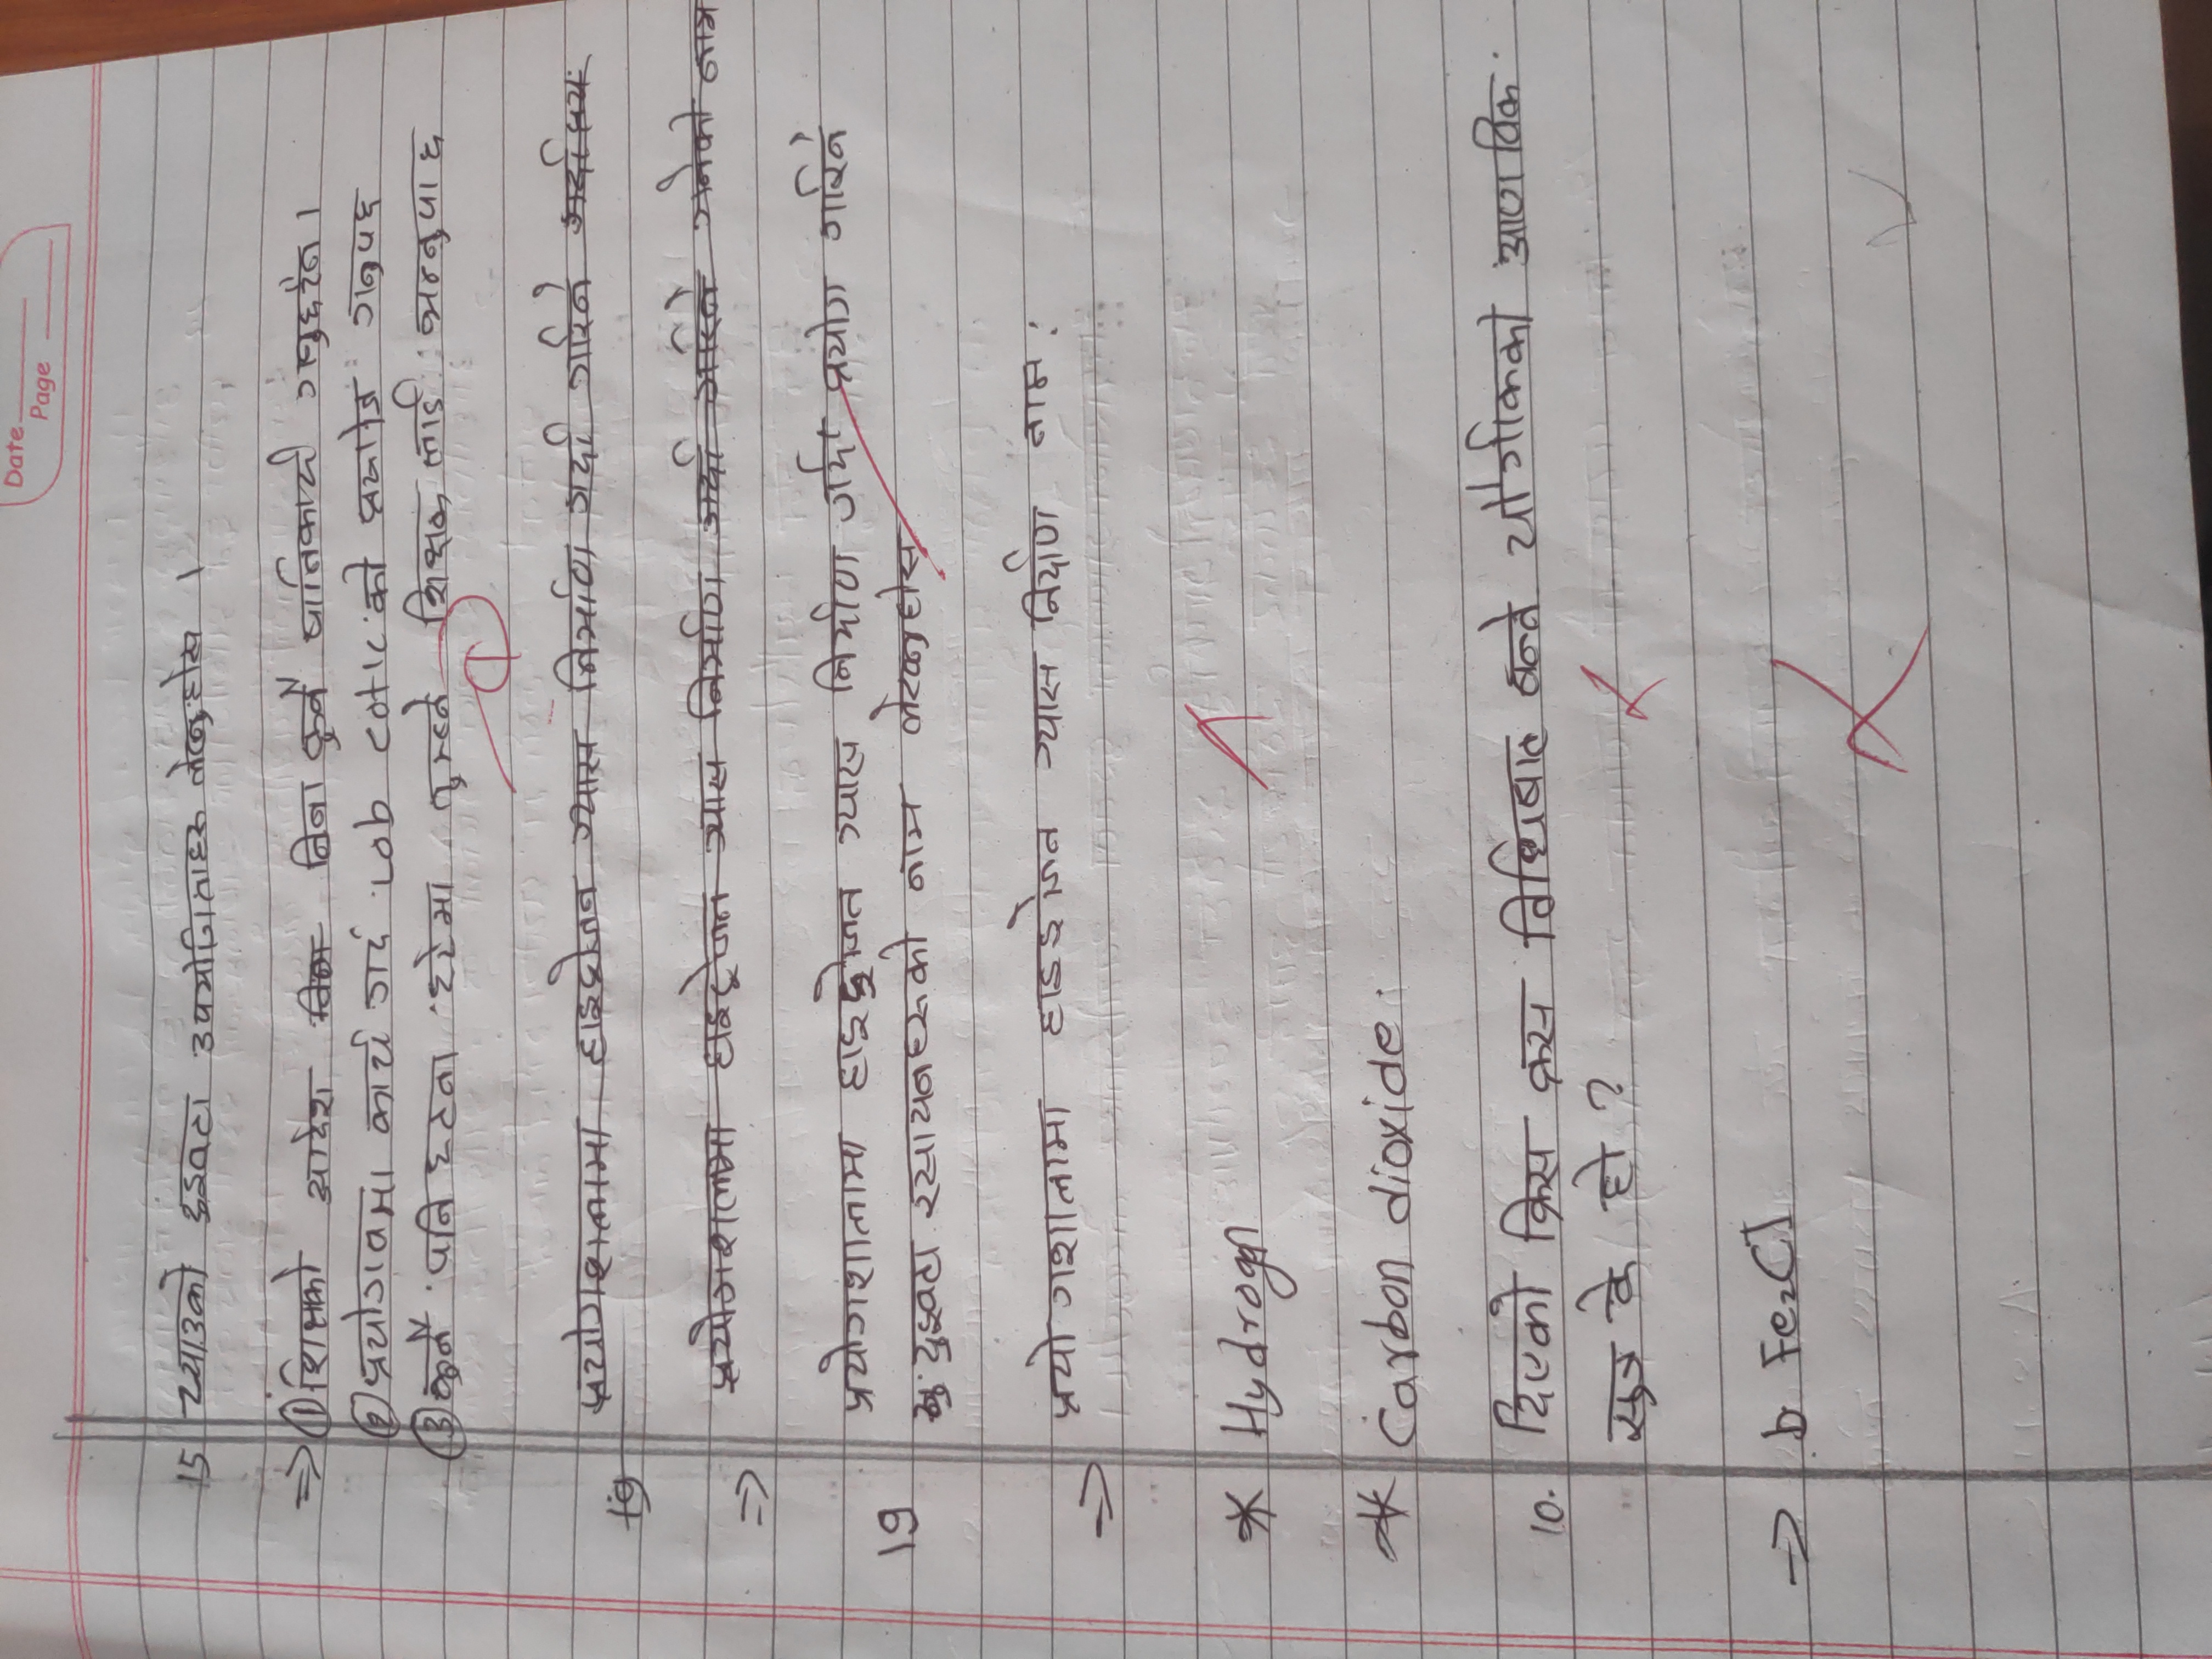 Date
Page
15 च्याउको दुइवटा उपयोगिताहरु लेख्नुहोस ।
⇒ ① शिक्षको आदेश बिना कुनै गनुहुदैन ।
② कार्य गर्द Lab को गनुपछ
③ कुनै पनि घटना घटेमा तुरुन्ते शिक्षक लाई भन्नुपाछ
19 प्रयोगशलामा हाइड्रोजन ग्यास निर्माण गर्दा गरिने
⇒ प्रयोगशलामा हाइड्रोजन ग्यास निर्माण गर्दा गरिने नाम
19 प्रयोगशालामा हाइड्रोजन ग्यास निर्माण गर्दा प्रयोग गरिने
दुइवटा रसायनहरुको नाम लेख्नुहोस
⇒ प्रयोगशालामा हाइड्रोजन ग्यास निर्माण नाम :
* Hydrogen
* Carbon dioxide.
10. दिएको क्रिस क्रस विधिबाट बन्ने यौगीकको आणविक
सुत्र के हो ?
⇒ b Fe₂Cl